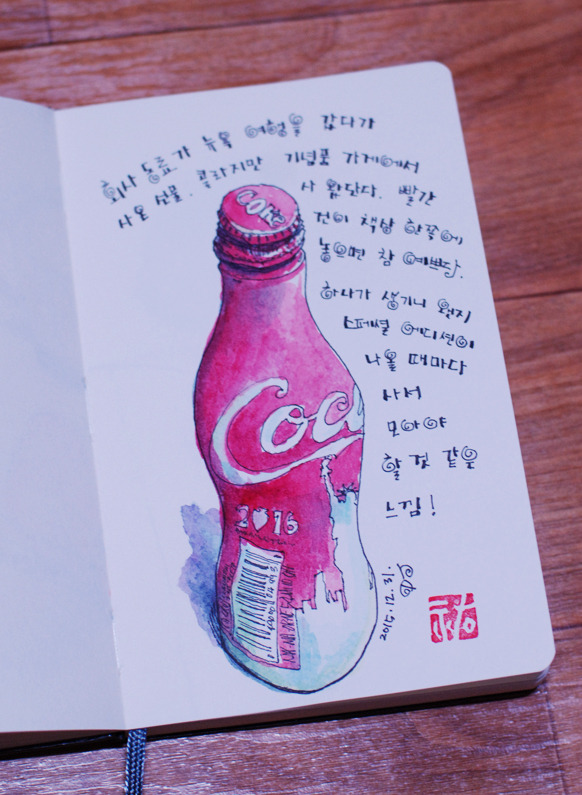 회사 동료가 뉴욕 여행을 갔다가
사온 선물. 콜라지만 기념품 가게에서
사 왔단다. 빨간
건이 책상 한쪽에
놓으면 참 예쁘당.
하나가 생기니 왠지
스페셜 에디션이
나올 때마다
사서
모아야
할 것 같은
느낌!
Coke
Coca
2016
2015.12.31.